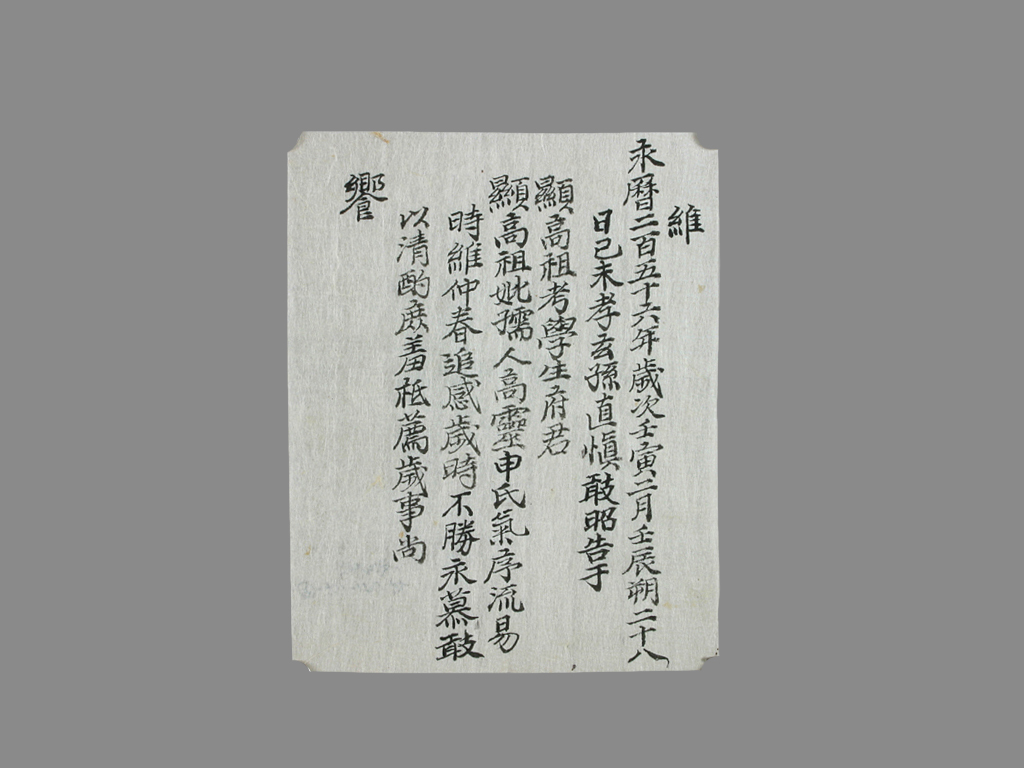 維
永曆二百五十六年歲次壬寅二月壬辰朔二十八
日己未孝玄孫直愼敢昭告于
顯高祖考學生府君
顯高祖妣孺人高靈申氏氣序流易
時維仲春追感歲時不勝永慕敢
以清酌庶羞祗薦歲事尚
饗